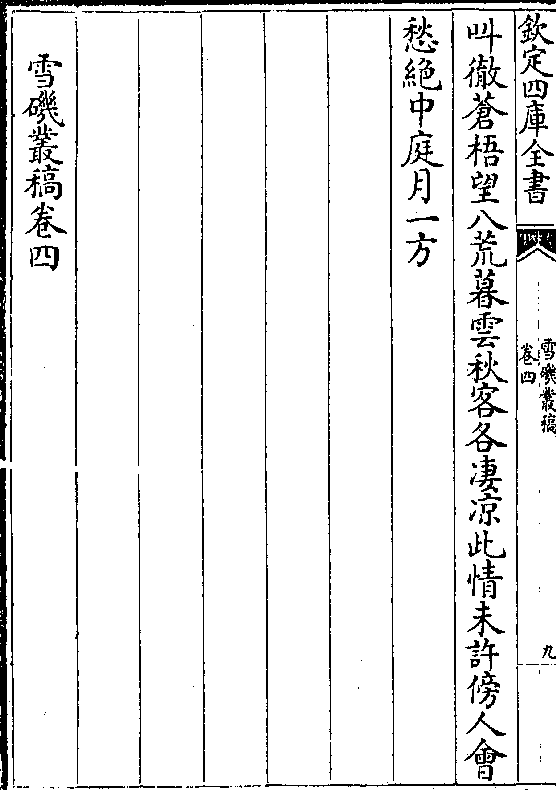 欽定四庫全書
雪磯叢稿
卷四
九
叫徹蒼梧望八荒暮雲秋客各凄凉此情未許傍人會
愁絶中庭月一方
雪磯叢稿卷四